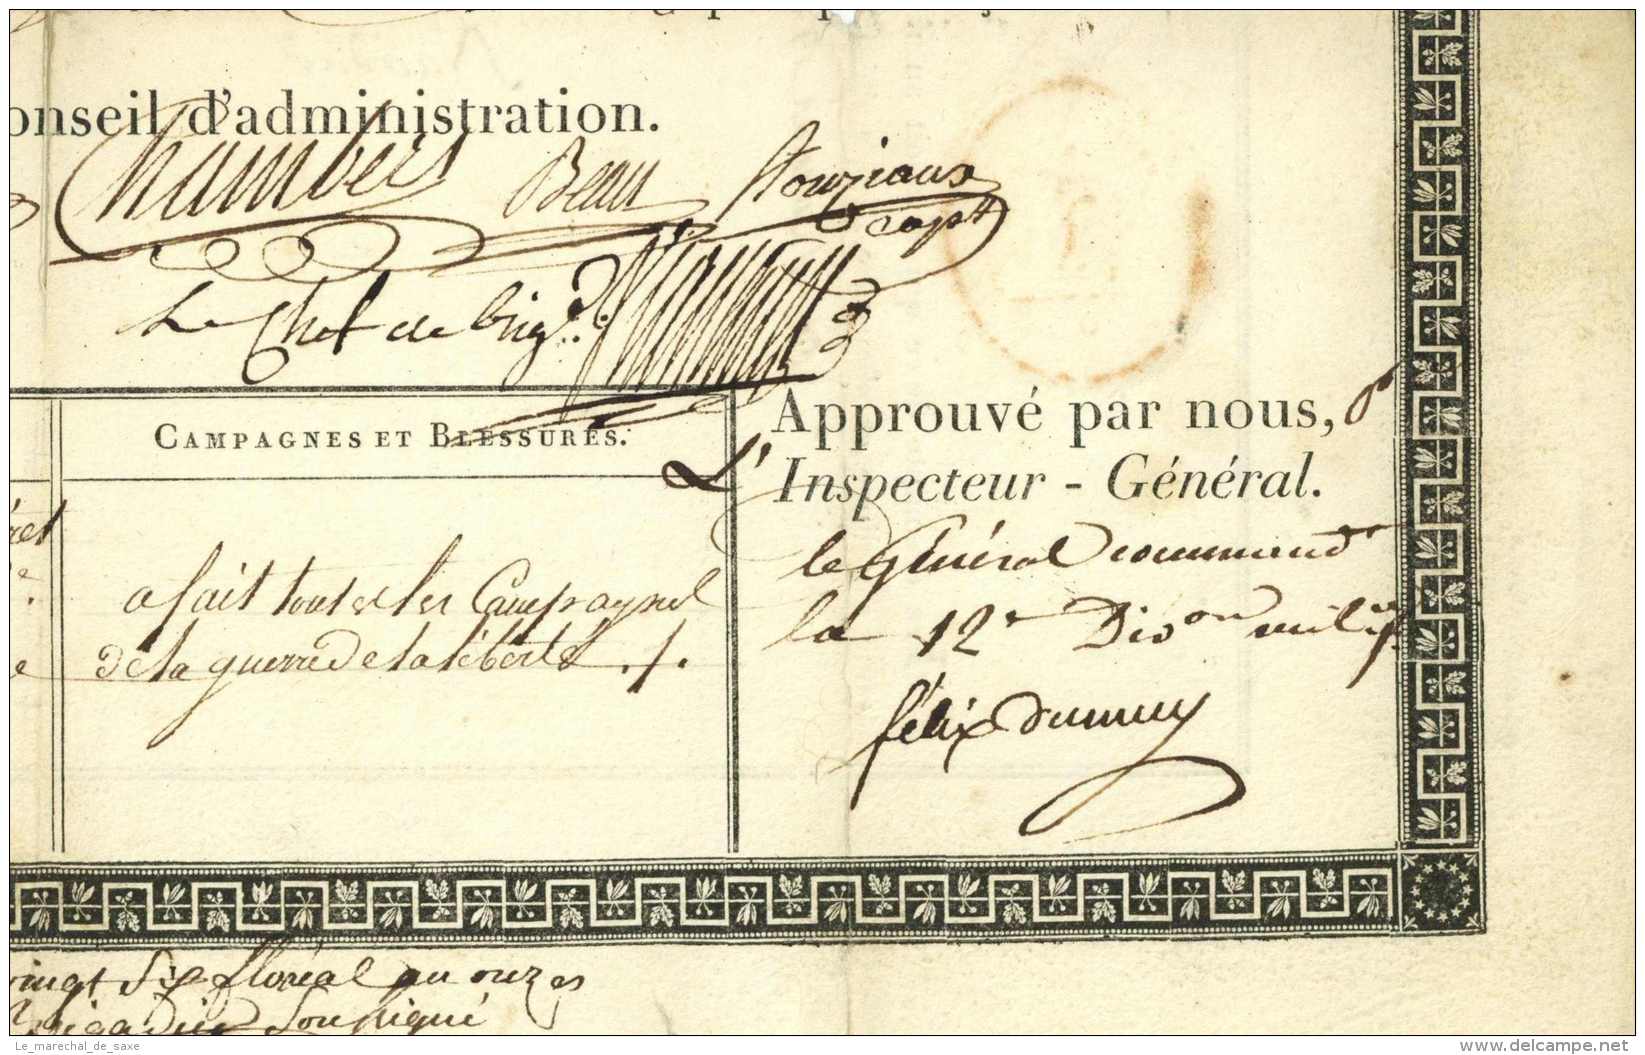 onseil d'administration.
Chambers Beau
capt
Le Chef de brig.de
CAMPAGNES ET BLESSURES.
a fait toutes les Campagnes
de la guerre de la liberté ./.
Approuvé par nous,
L'Inspecteur - Général.
le Général command
la 12e Dison milit
félix dumuy
vingt Six floréal an onze
Brigadier Soussigné
Le_marechal_de_saxe
www.delcampe.net